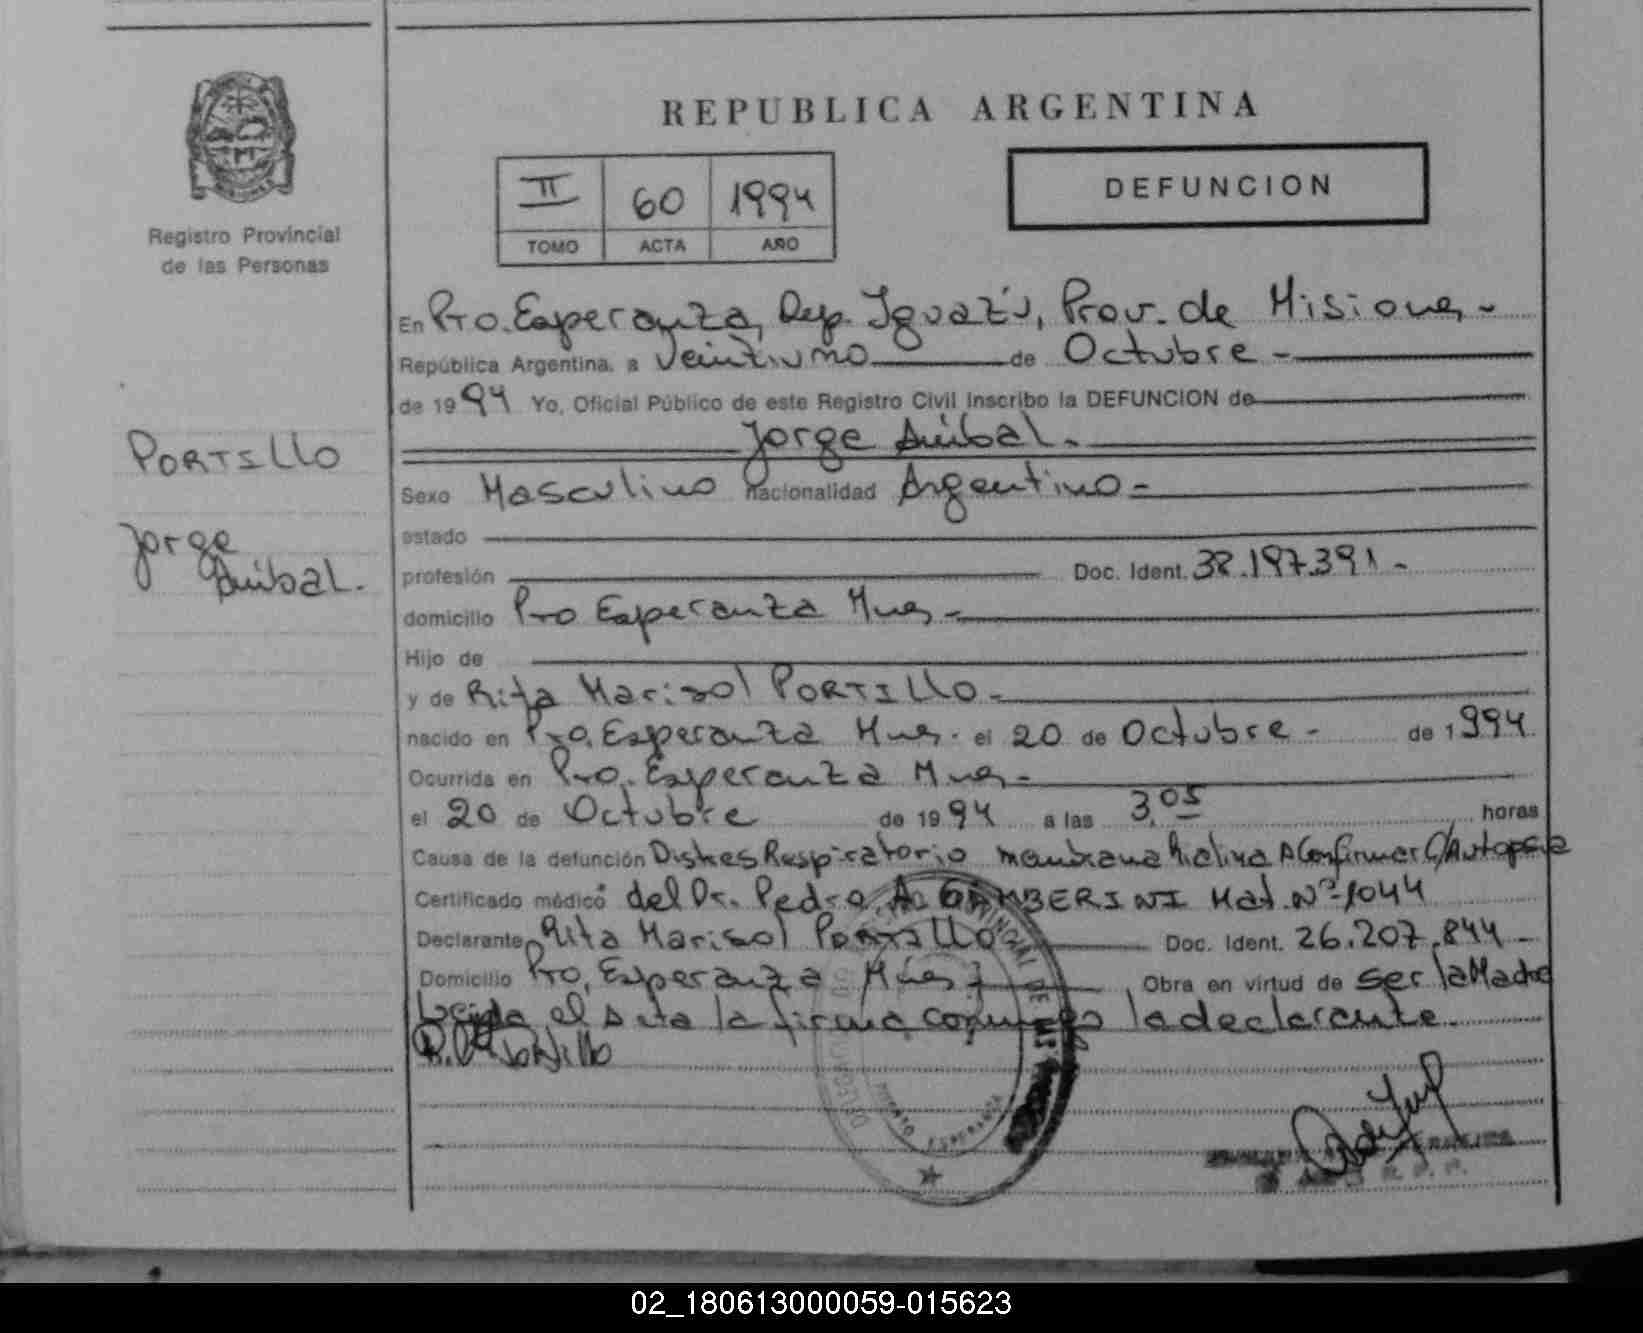 REPUBLICA ARGENTINA
II 60 1994
TOMO ACTA AÑO
DEFUNCION
Registro Provincial
de las Personas
PORTILLO
Jorge
Anibal.
En Pto. Esperanza, Dep. Iguazú, Prov. de Misiones -
República Argentina, a Veintiuno de Octubre -
de 1994 Yo, Oficial Público de este Registro Civil Inscribo la DEFUNCION de
Jorge Anibal.
Sexo Masculino nacionalidad Argentino -
estado
profesión Doc. Ident. 38.197.391 -
domicilio Pto Esperanza Mnes -
Hijo de
y de Rita Marisol PORTILLO -
nacido en Pto. Esperanza Mnes. el 20 de Octubre - de 1994
Ocurrida en Pto. Esperanza Mnes -
el 20 de Octubre de 1994 a las 3,05 horas
Causa de la defunción Distres Respiratorio membrana hialina A Confirmar C/Autopsia
Certificado médico del Dr. Pedro A. GAMBERINI Mat. Nº 1044
Declarante Rita Marisol PORTILLO Doc. Ident. 26.207.844 -
Domicilio Pto, Esperanza Mnes Obra en virtud de ser la Madre
Leida el Acta la firma conmigo la declarante
R. Portillo
PUERTO ESPERANZA
02_180613000059-015623